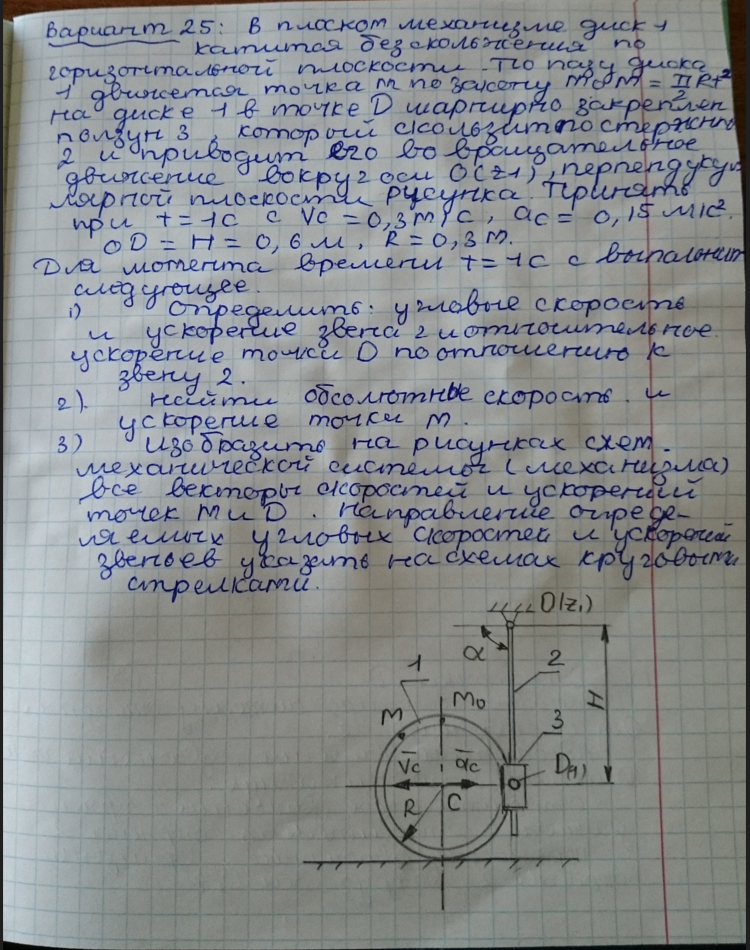 Вариант 25: В плоском механизме диск 1
катится без скольжения по
горизонтальной плоскости. По пазу диска
1 движется точка М по закону M₀M = π/2 Rt²
на диске 1 в точке D шарнирно закреплен
ползун 3, который скользит по стержню
2 и приводит его во вращательное
движение вокруг оси O(z1), перпендукуля
лярной плоскости рисунка. Принять
при t=1c с Vc = 0,3 м/с, ac = 0,15 м/с².
OD = H = 0,6 м, R = 0,3 м.
Для момента времени t=1c с выполнит
следующее.
1) Определить: угловые скорость
и ускорение звена 2 и относительное
ускорение точки D по отношению к
звену 2.
2). Найти обсолютные скорость и
ускорение точки М.
3) Изобразить на рисунках схем.
механической системы (механизма)
все векторы скоростей и ускорений
точек М и D. Направление опреде-
ляемых угловых скоростей и ускорений
звеньев указать на схемах круговыми
стрелками.
O(z1)
α
2
1
H
M
M₀
3
V̄c
āc
D(1)
R
C